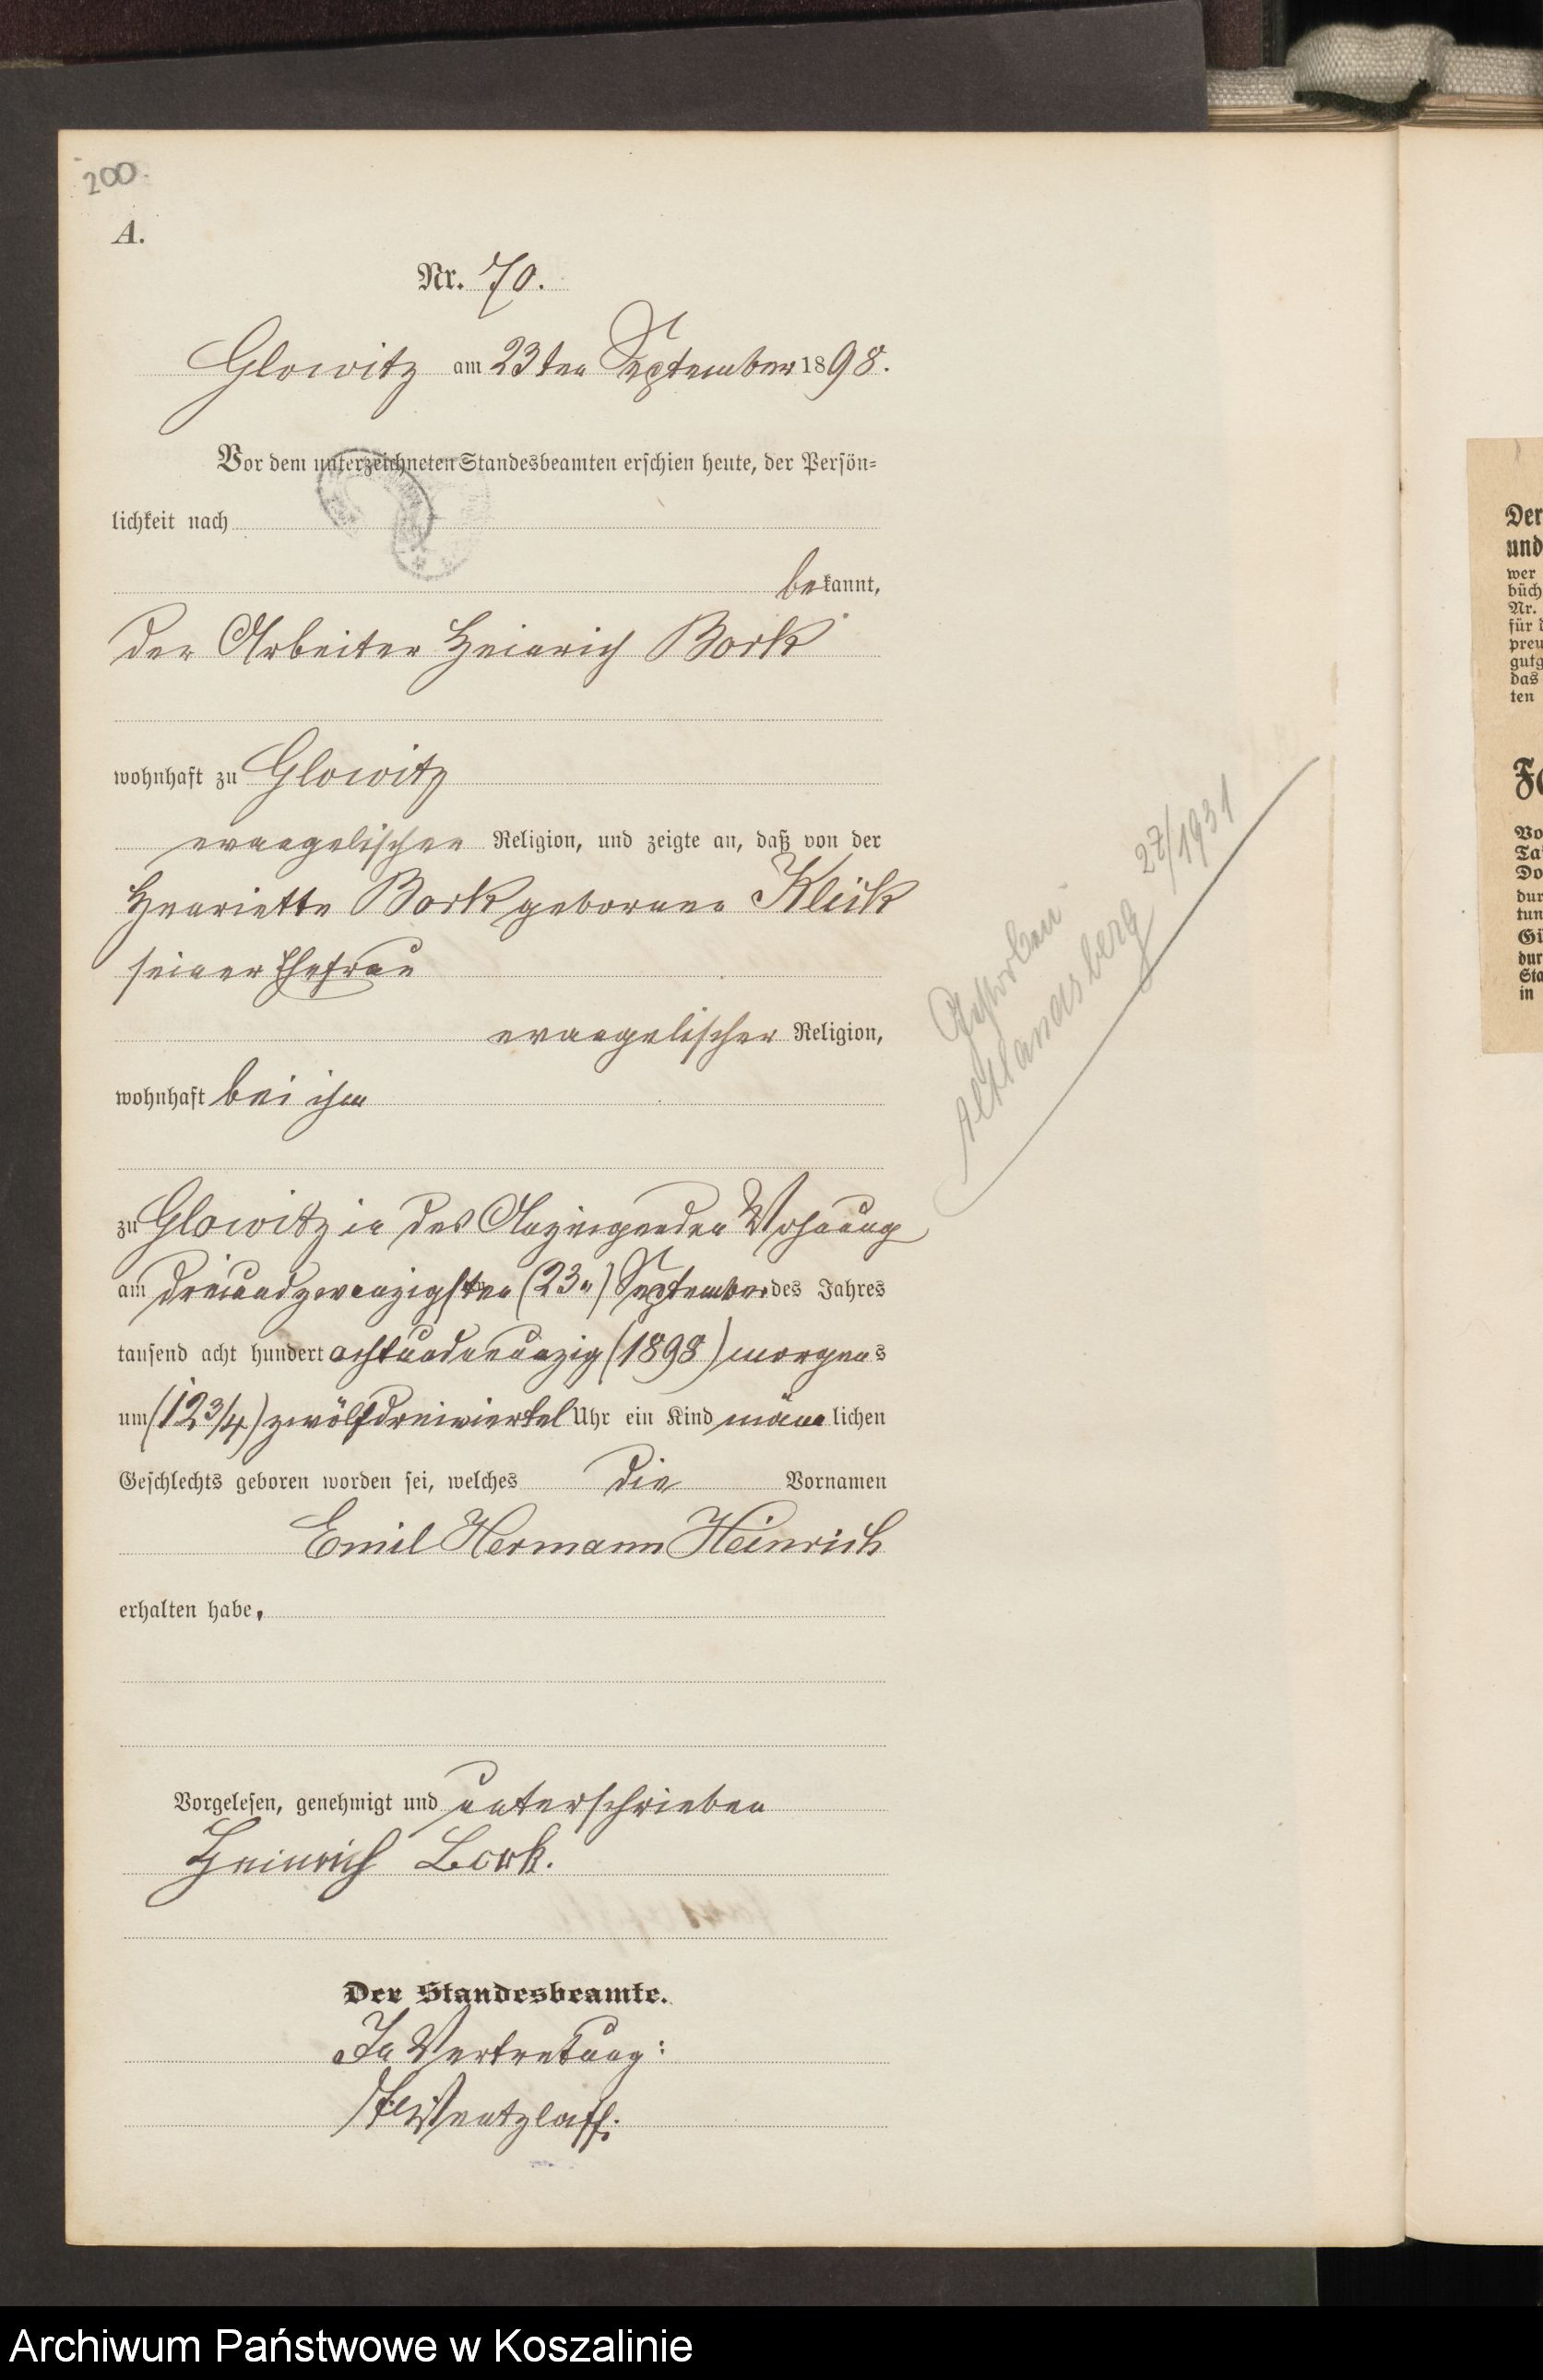 200.
A.
Nr. 70.
Glowitz am 23ten September 1898.
Vor dem unterzeichneten Standesbeamten erschien heute, der Persön=
lichkeit nach
bekannt,
der Arbeiter Heinrich Bork
wohnhaft zu Glowitz
evangelischen Religion, und zeigte an, daß von der
Henriette Bork geborenen Klück
seiner Ehefrau
evangelischer Religion,
wohnhaft bei ihm
zu Glowitz in des Anzeigenden Wohnung
am dreiundzwanzigsten (23") September des Jahres
tausend acht hundert achtundneunzig (1898) morgens
um (12 3/4) zwölfdreiviertel Uhr ein Kind männlichen
Geschlechts geboren worden sei, welches die Vornamen
Emil Hermann Heinrich
erhalten habe.
Vorgelesen, genehmigt und unterschrieben
Heinrich Bork.
Der Standesbeamte.
In Vertretung:
Wentzlaff.
Gestorben
Altlandsberg 27/1931
Der
und
wer
büch
Nr.
für d
preu
gutg
das
ten
Vo
Ta
Do
dur
tun
Gü
dur
Sta
in
Archiwum Państwowe w Koszalinie